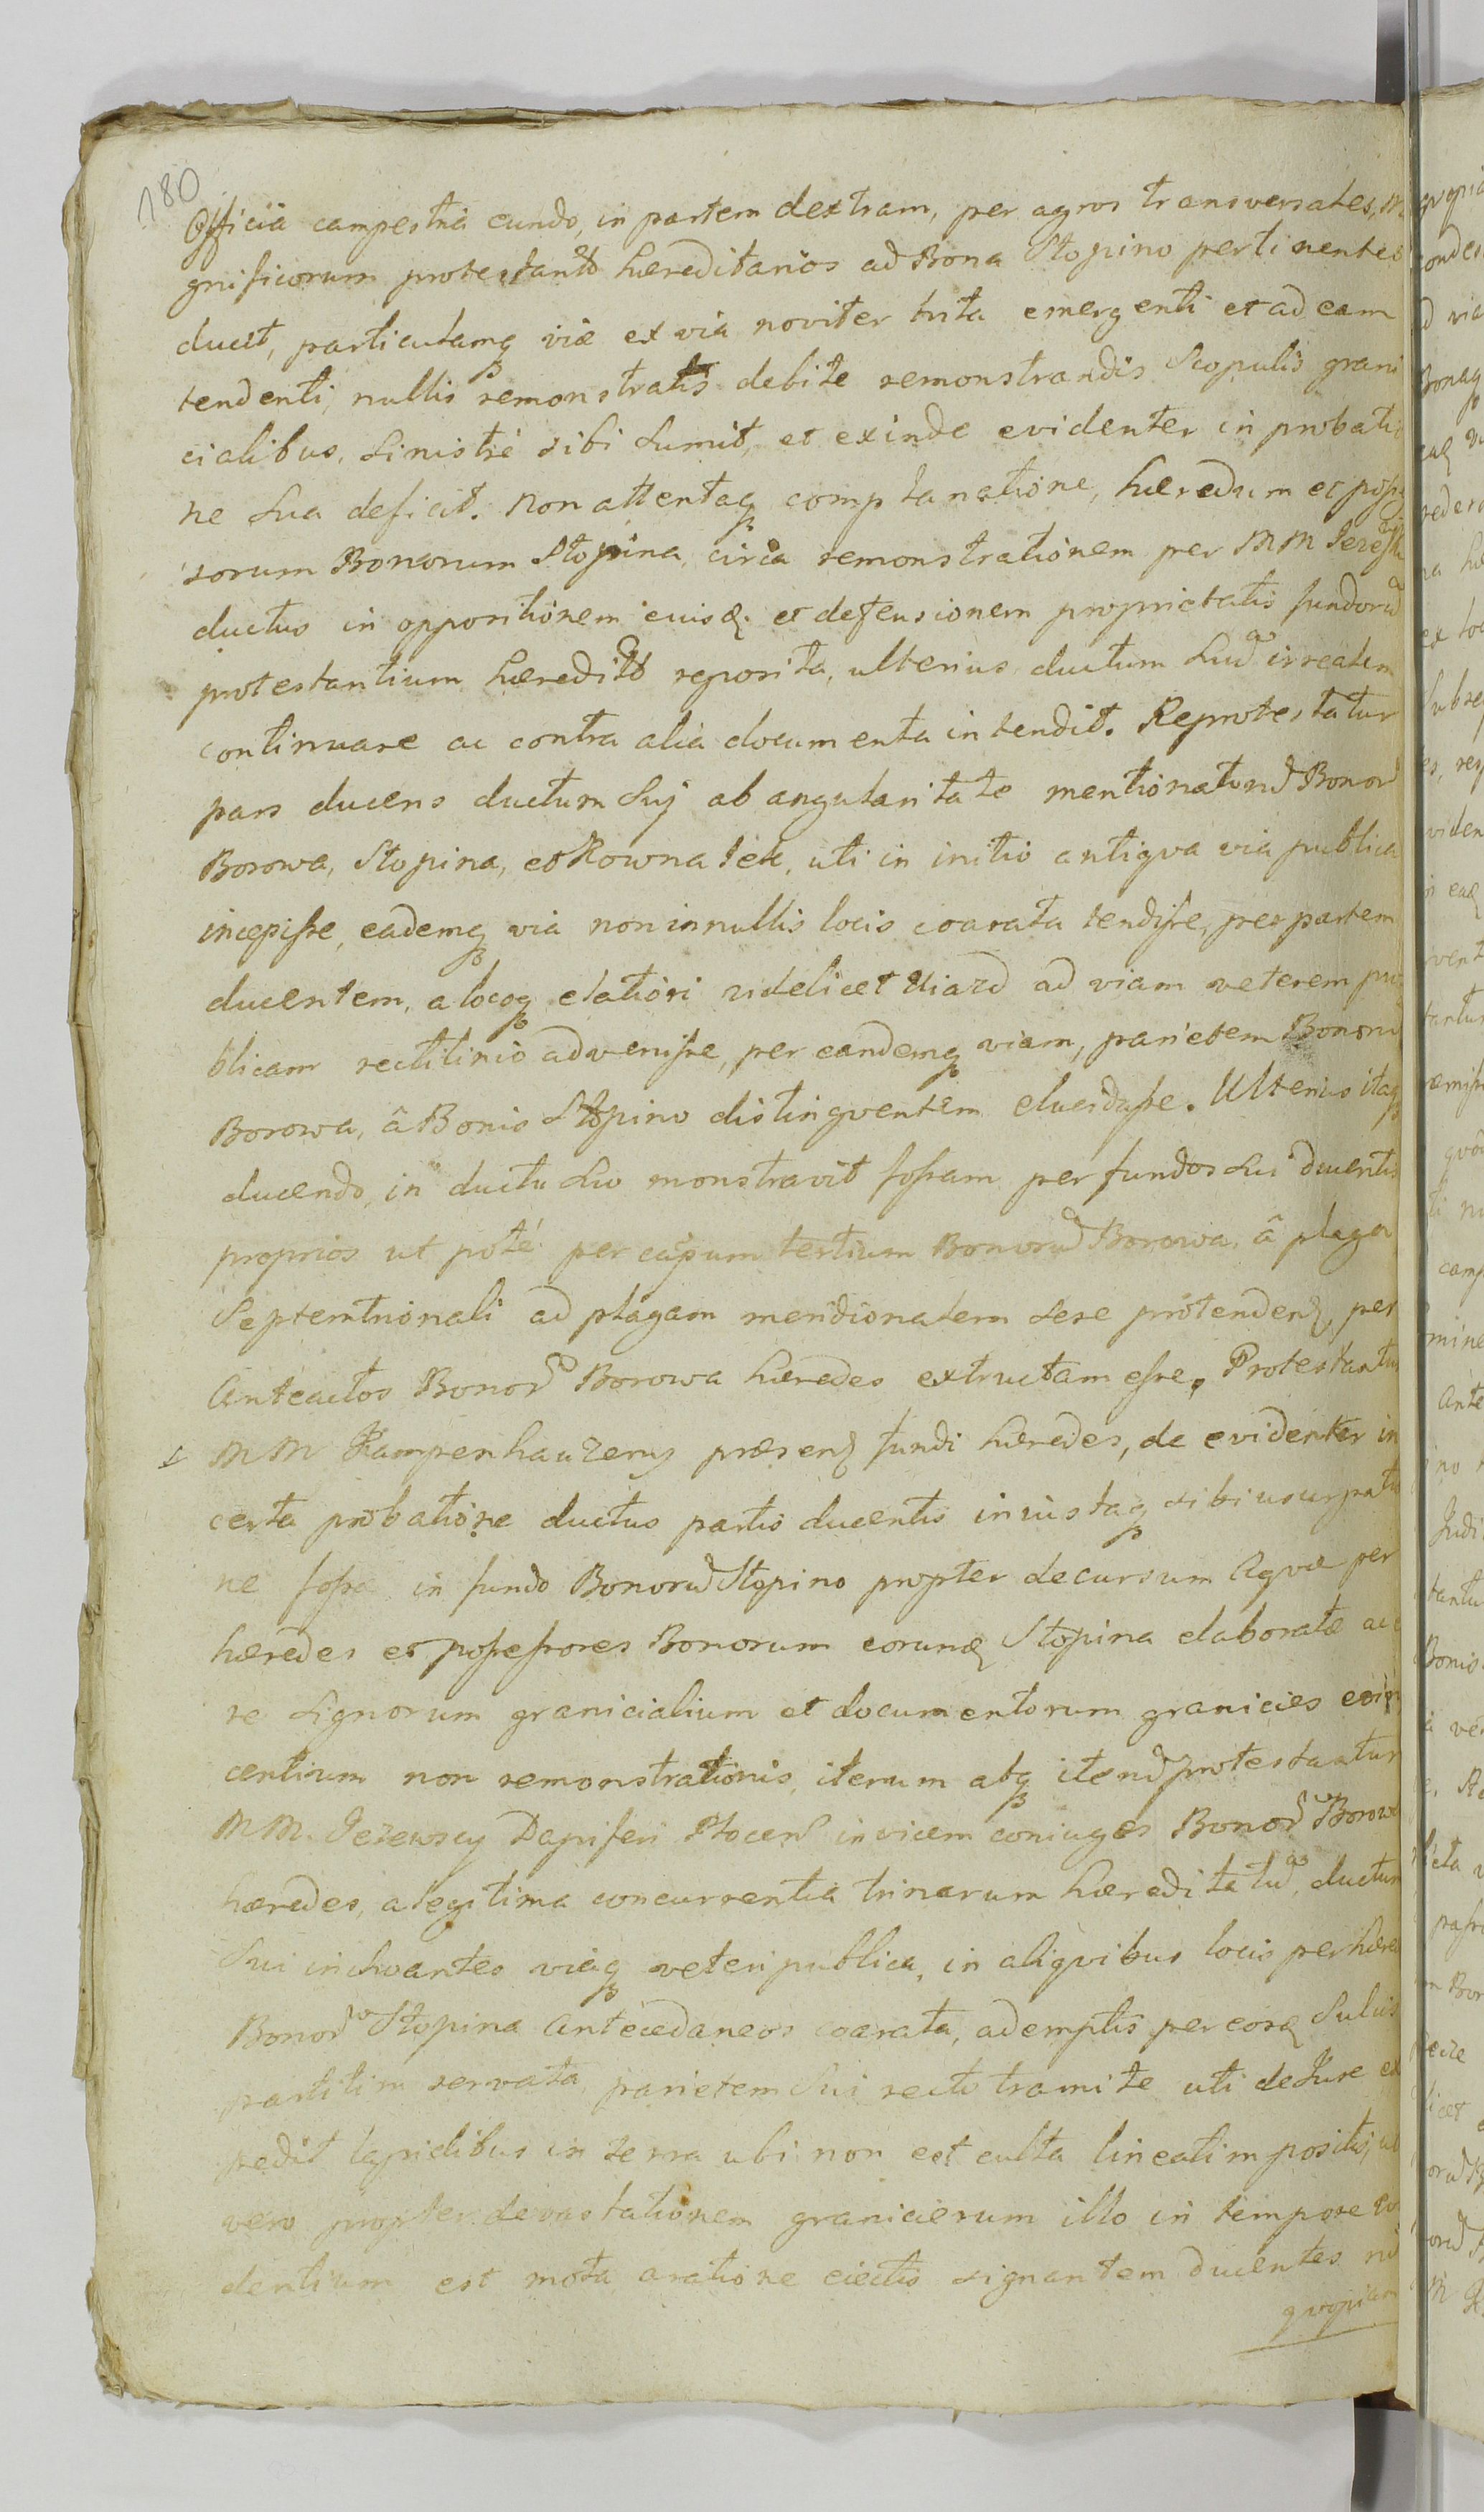 180
Officia campestria eundo, in partem dextram, per agros transversales, M
gnificorum protestantib hæreditarios ad Bona Stopino pertinentes
ducit, particulamq viæ ex via noviter trita emergenti et ad eam
tendenti, nullis remonstratis debite remonstrandis Scopulis grani
cialibus, Sinistré sibi Sumit, et exinde evidenter in probatio
ne Sua deficit. Non attentaq complanatione, hæredum et posses
sorum Bonorum Stopina, circa remonstrationem per MM
ductus in oppositionem eiusd. et defensionem proprietatis fundorũ
protestantium hæredit reposita, ulterius ductum Suũ irrealem
continuare ac contra alia documenta intendit. Reprotestatur
pars ducens ductum Suj ab angularitate mentionatorũ Bonorũ
Borowa, Stopina, et Kownatek, uti in initio antiqva via publica
incepisse, eademq via nonin nullis locis coarata tendisse, per partem
ducentem, a locoq elatiori videlicet Uiazd ad viam veterem pu
blicam rectilinio advenisse, per eandemq viam, parietem Bonorũ
Borowa, â Bonis Stopino distingventem elucidasse. Ulterius itaq
ducendo, in ductu Suo monstravit fossam per fundos Sui ducentis
proprios ut poté per campum tertium Bonorũ Borowa, â plaga
Septemtrionali ad plagam meridionalem sese protenden, per
Anteactos Bonorũ Borowa hæredes extructam esse. Protestantur
MM Kampenhauzeny præsen fundi hæredes, de evidenter in
certa probatione ductus partis ducentis iniustaq sibi usurpatio
ne fossæ in fundo Bonorũ Stopino propter decursum Aqvæ per
hæredes et possessores Bonorum eorund Stopina elaboratæ ac
re Signorum granicialium et documentorum granicies
centium non remonstrationis, iterum atq iterũ protestantur
MM. Jezewscy Dapiferi Plocen invicem coniuges Bonorũ Borowa
hæredes, a legitima concurrentia trinarum hæreditatũ, ductum
Sui inchoantes viaq veteri publica, in aliqvibus locis per hæred
Bonorũ Stopina Antecedaneos coarata, ademptis per eosd Sulcis
partitim servata, parietem Sui recto tramite uti de Jure ex
pedit lapidibus in terra ubi non est culta lineatim positis, ub
vero propter devastationem granicierum illo in tempore
dentium est mota aratione eiectis signantem ducentes
qvopiam